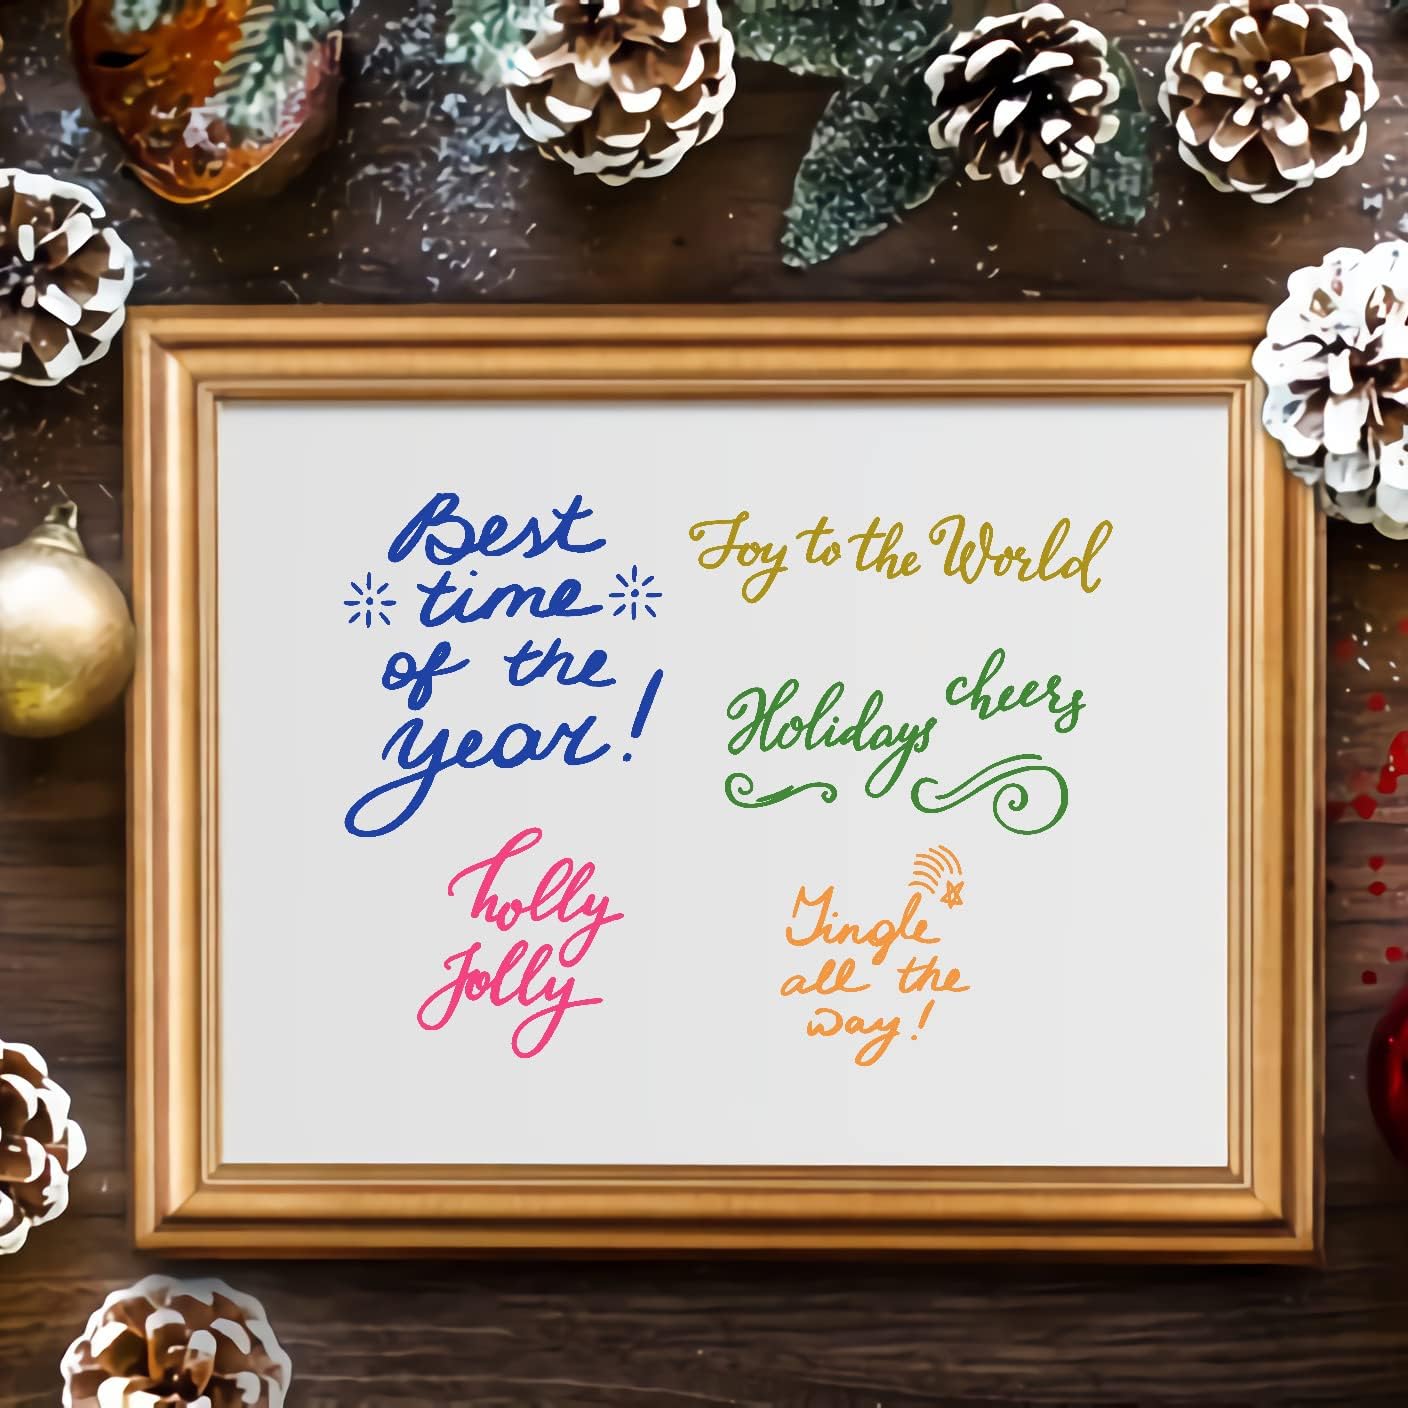 Best
time
of the
year!
Joy to the World
Holidays cheers
holly
Jolly
Jingle
all the
way!